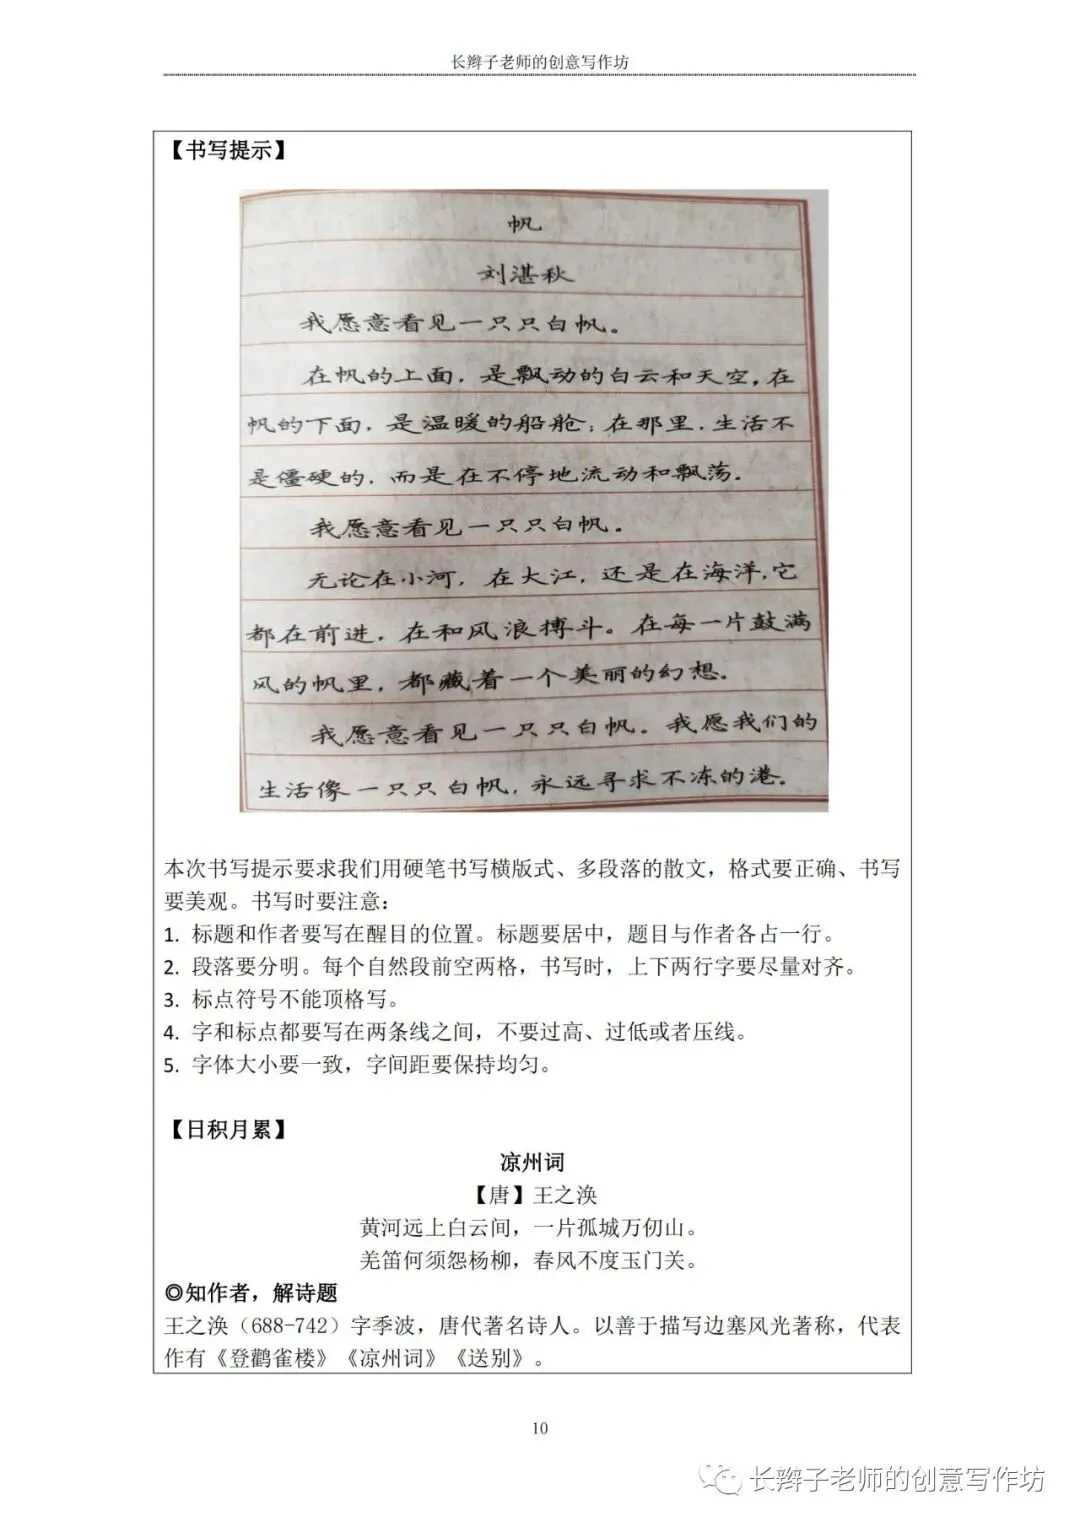 长辫子老师的创意写作坊
【书写提示】
帆
刘湛秋
我愿意看见一只只白帆。
在帆的上面，是飘动的白云和天空，在
帆的下面，是温暖的船舱；在那里，生活不
是僵硬的，而是在不停地流动和飘荡。
我愿意看见一只只白帆。
无论在小河，在大江，还是在海洋，它
都在前进，在和风浪搏斗。在每一片鼓满
风的帆里，都藏着一个美丽的幻想。
我愿意看见一只只白帆。我愿我们的
生活像一只只白帆，永远寻求不冻的港。
本次书写提示要求我们用硬笔书写横版式、多段落的散文，格式要正确、书写
要美观。书写时要注意：
1. 标题和作者要写在醒目的位置。标题要居中，题目与作者各占一行。
2. 段落要分明。每个自然段前空两格，书写时，上下两行字要尽量对齐。
3. 标点符号不能顶格写。
4. 字和标点都要写在两条线之间，不要过高、过低或者压线。
5. 字体大小要一致，字间距要保持均匀。
【日积月累】
凉州词
【唐】王之涣
黄河远上白云间，一片孤城万仞山。
羌笛何须怨杨柳，春风不度玉门关。
◎知作者，解诗题
王之涣（688-742）字季波，唐代著名诗人。以善于描写边塞风光著称，代表
作有《登鹳雀楼》《凉州词》《送别》。
10
长辫子老师的创意写作坊